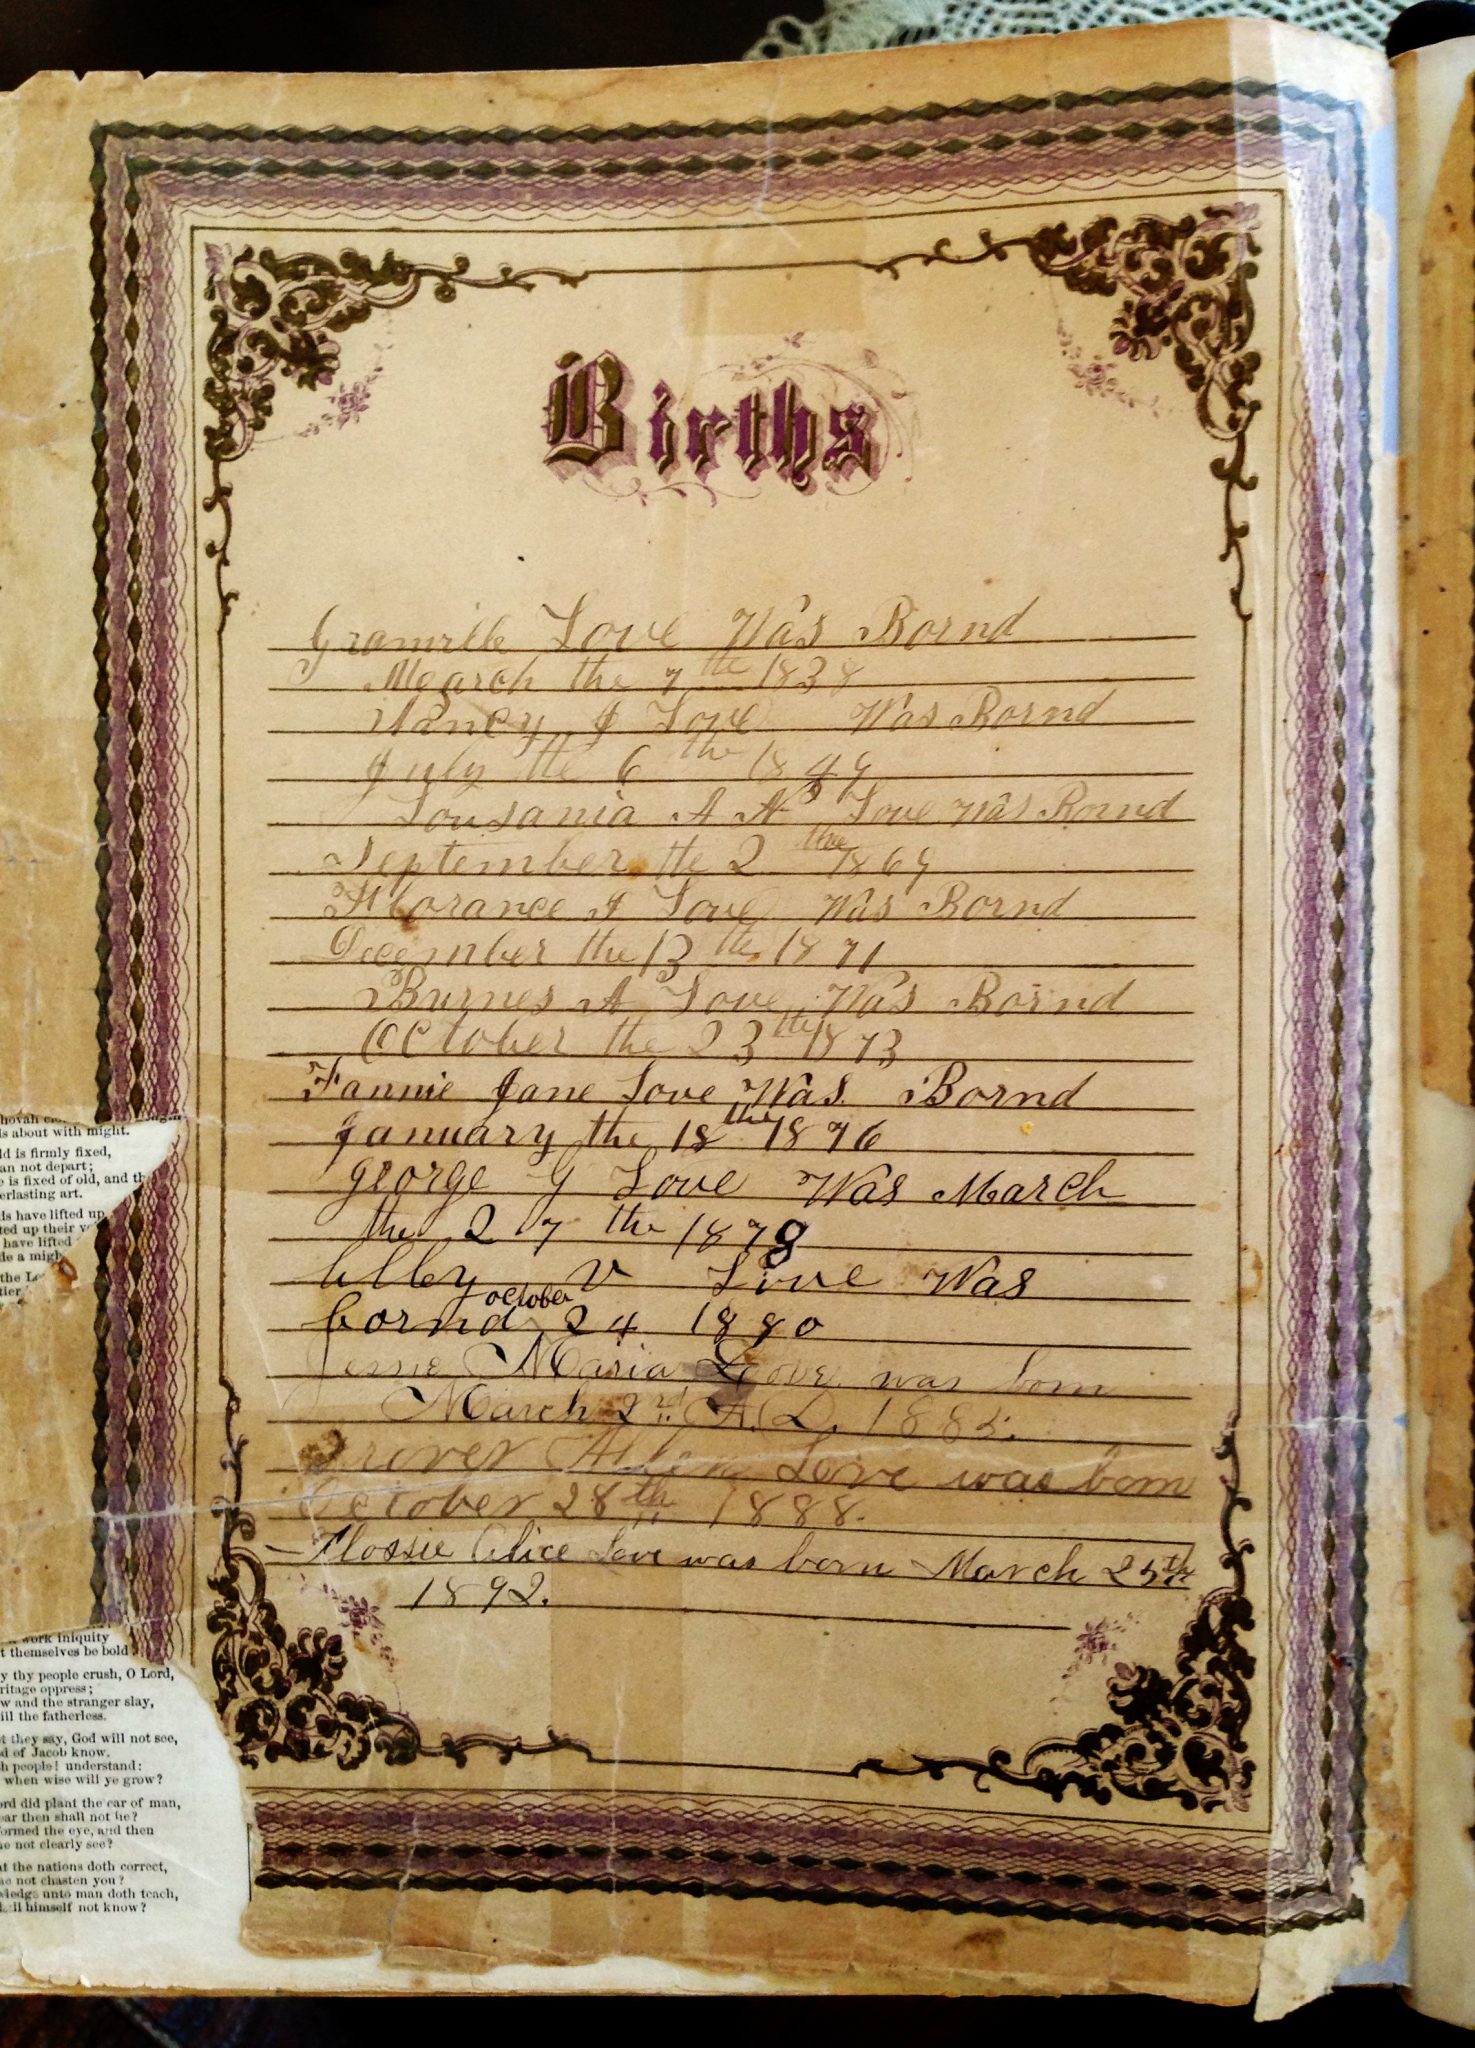 Births
Granville Love Was Bornd
March the 7 the 1838
Nancy J Love Was Bornd
July the 6 the 1849
Lousania A A Love Was Bornd
September the 2 the 1869
Florance J Love Was Bornd
December the 13 the 1871
Burnes A Love Was Bornd
October the 23 the 1873
Fannie Jane Love Was Bornd
January the 18 the 1876
George G Love Was March
the 27 the 1878
V Love Was
bornd october 24 1880
Maria Love was born
March 2nd A.D. 1885.
Grover Allen Love was born
October 28th 1888.
Flossie Alice Love was born March 25th
1892.
s about with might.
ld is firmly fixed,
an not depart;
e is fixed of old, and th
erlasting art.
ds have lifted up,
ted up their v
have lifted
de a migh
the Lo
tier
work iniquity
t themselves be bold
y thy people crush, O Lord,
ritage oppress;
w and the stranger slay,
ill the fatherless.
t they say, God will not see,
d of Jacob know.
h people! understand:
when wise will ye grow?
ord did plant the ear of man,
ear then shall not he?
formed the eye, and then
he not clearly see?
at the nations doth correct,
he not chasten you?
wledge unto man doth teach,
ll himself not know?